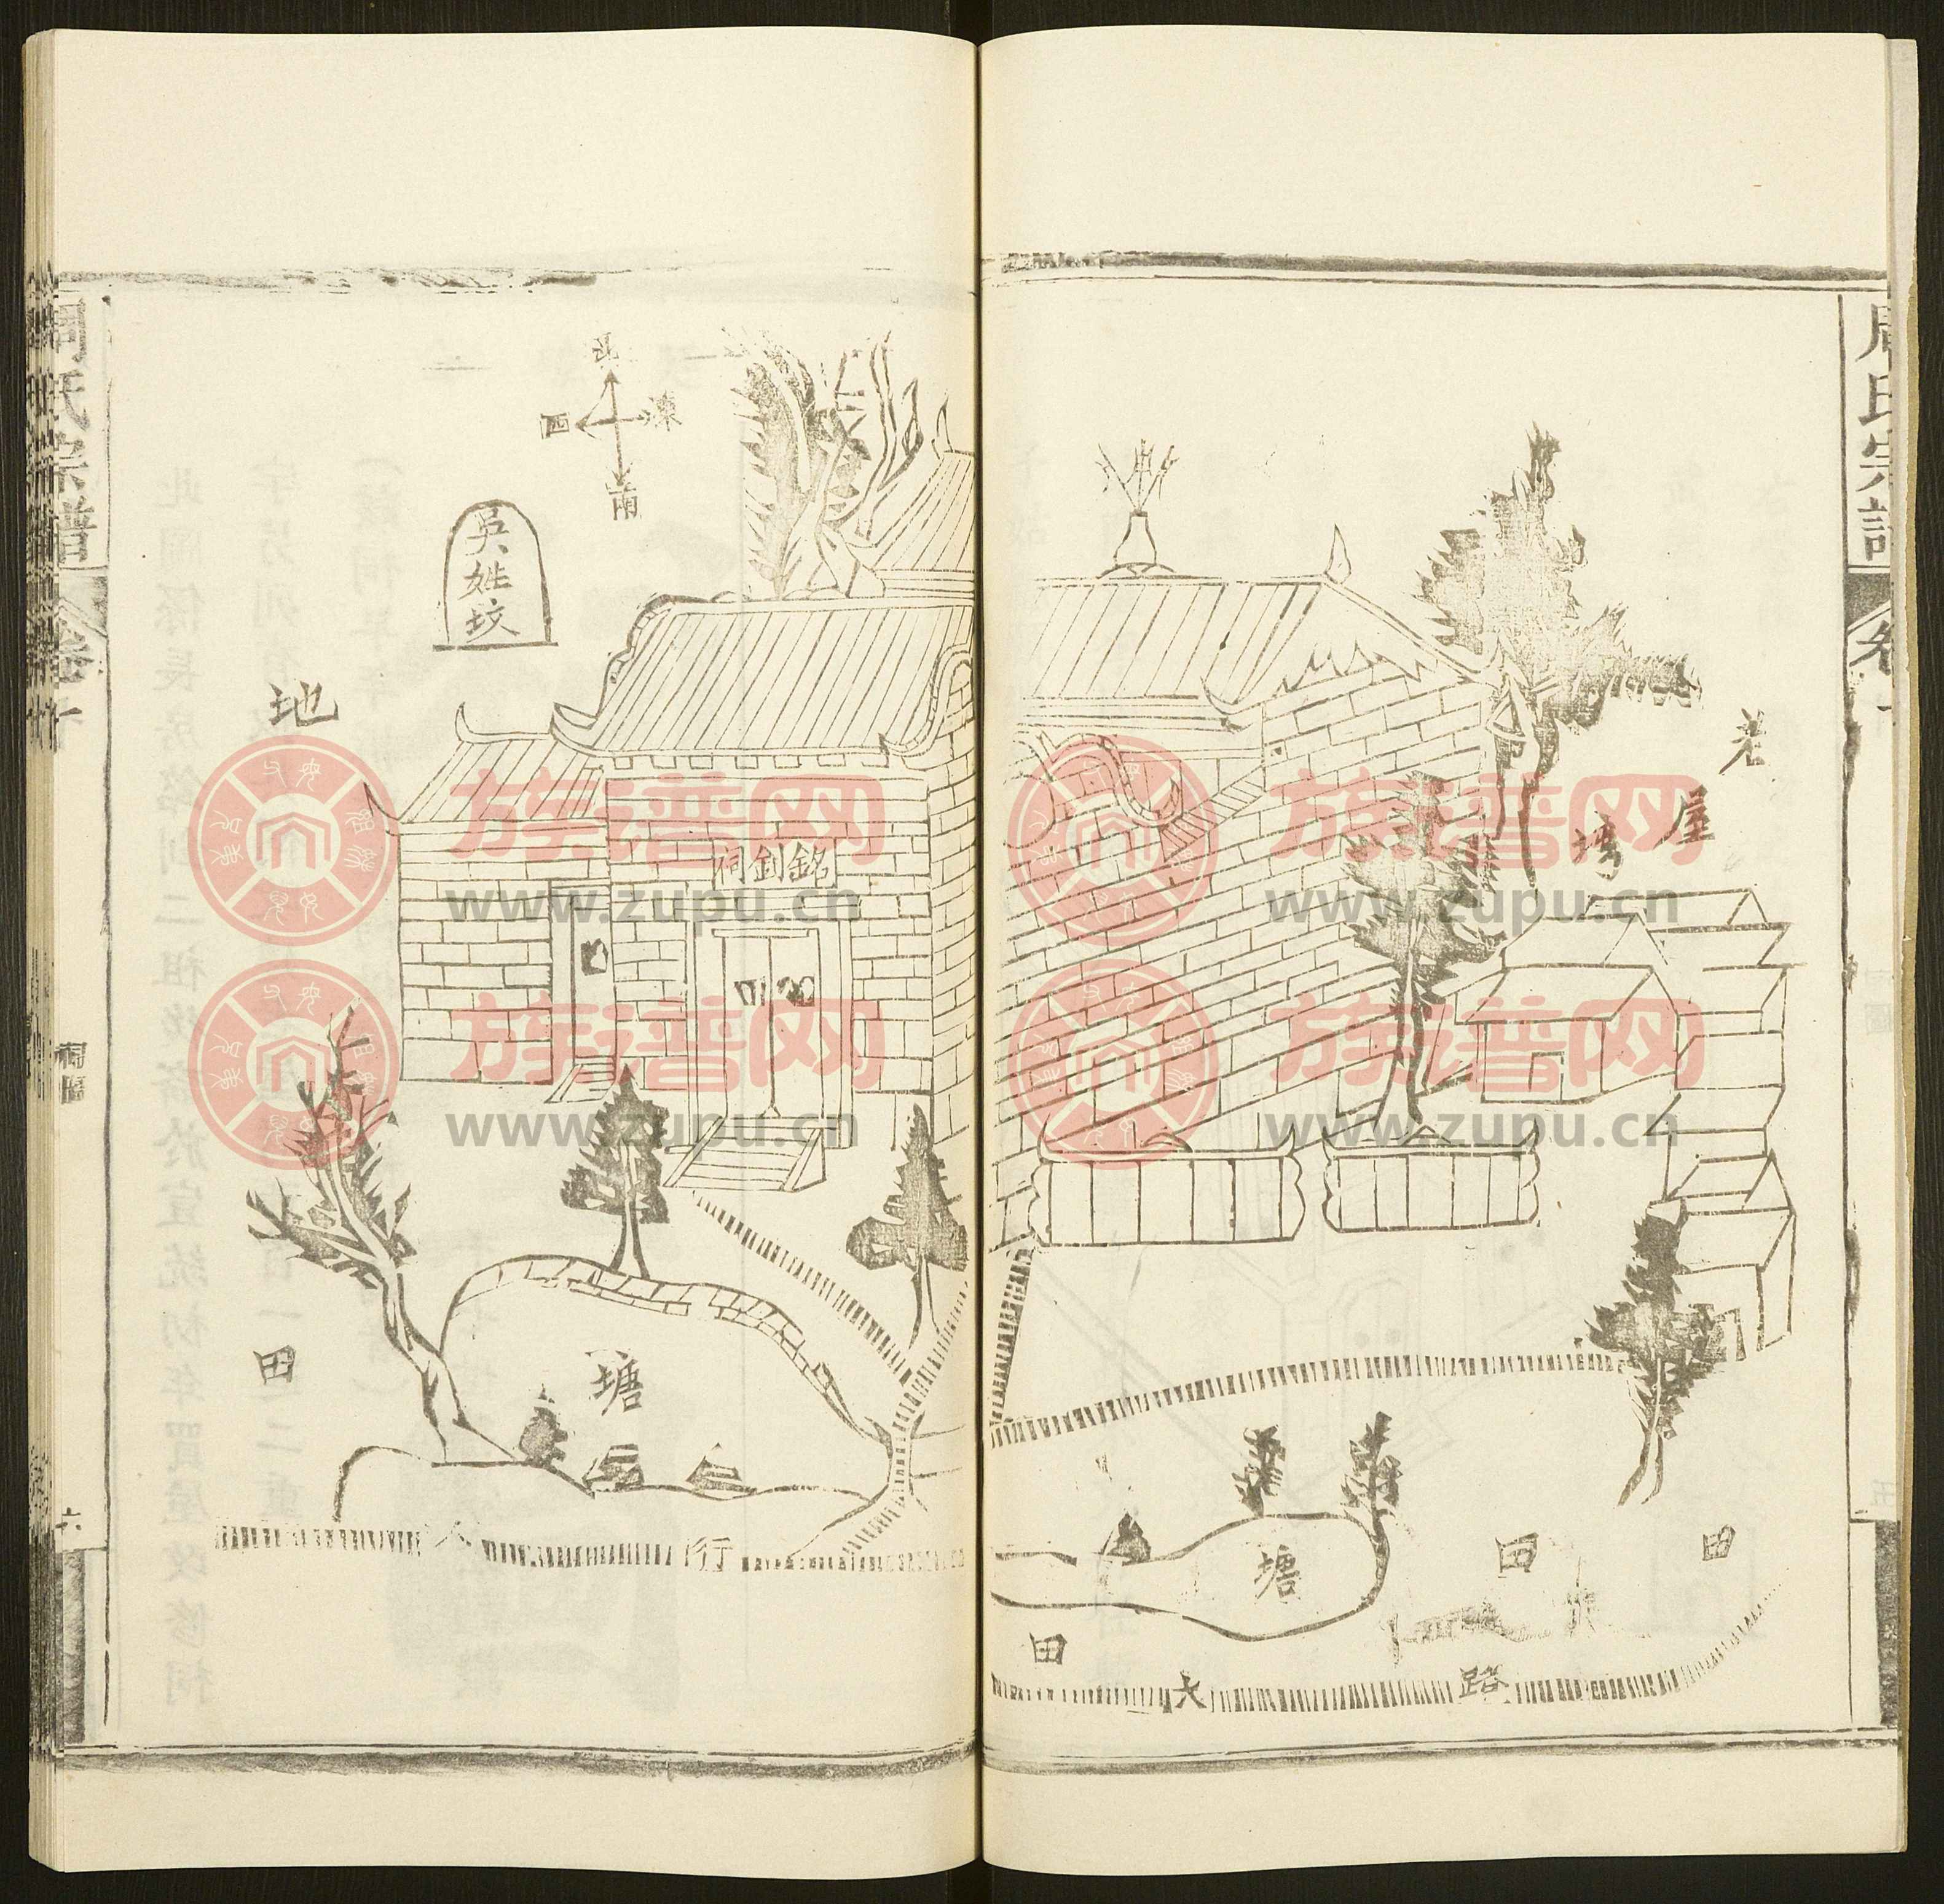 周氏宗譜
卷十
老屋塆
塘
田
田
田
大路
北
東
西
南
吳姓坟
地
銘釗祠
塘
田
行
周氏宗譜
卷十
祠圖
六
族谱网
www.zupu.cn
族谱网
www.zupu.cn
族谱网
www.zupu.cn
族谱网
www.zupu.cn